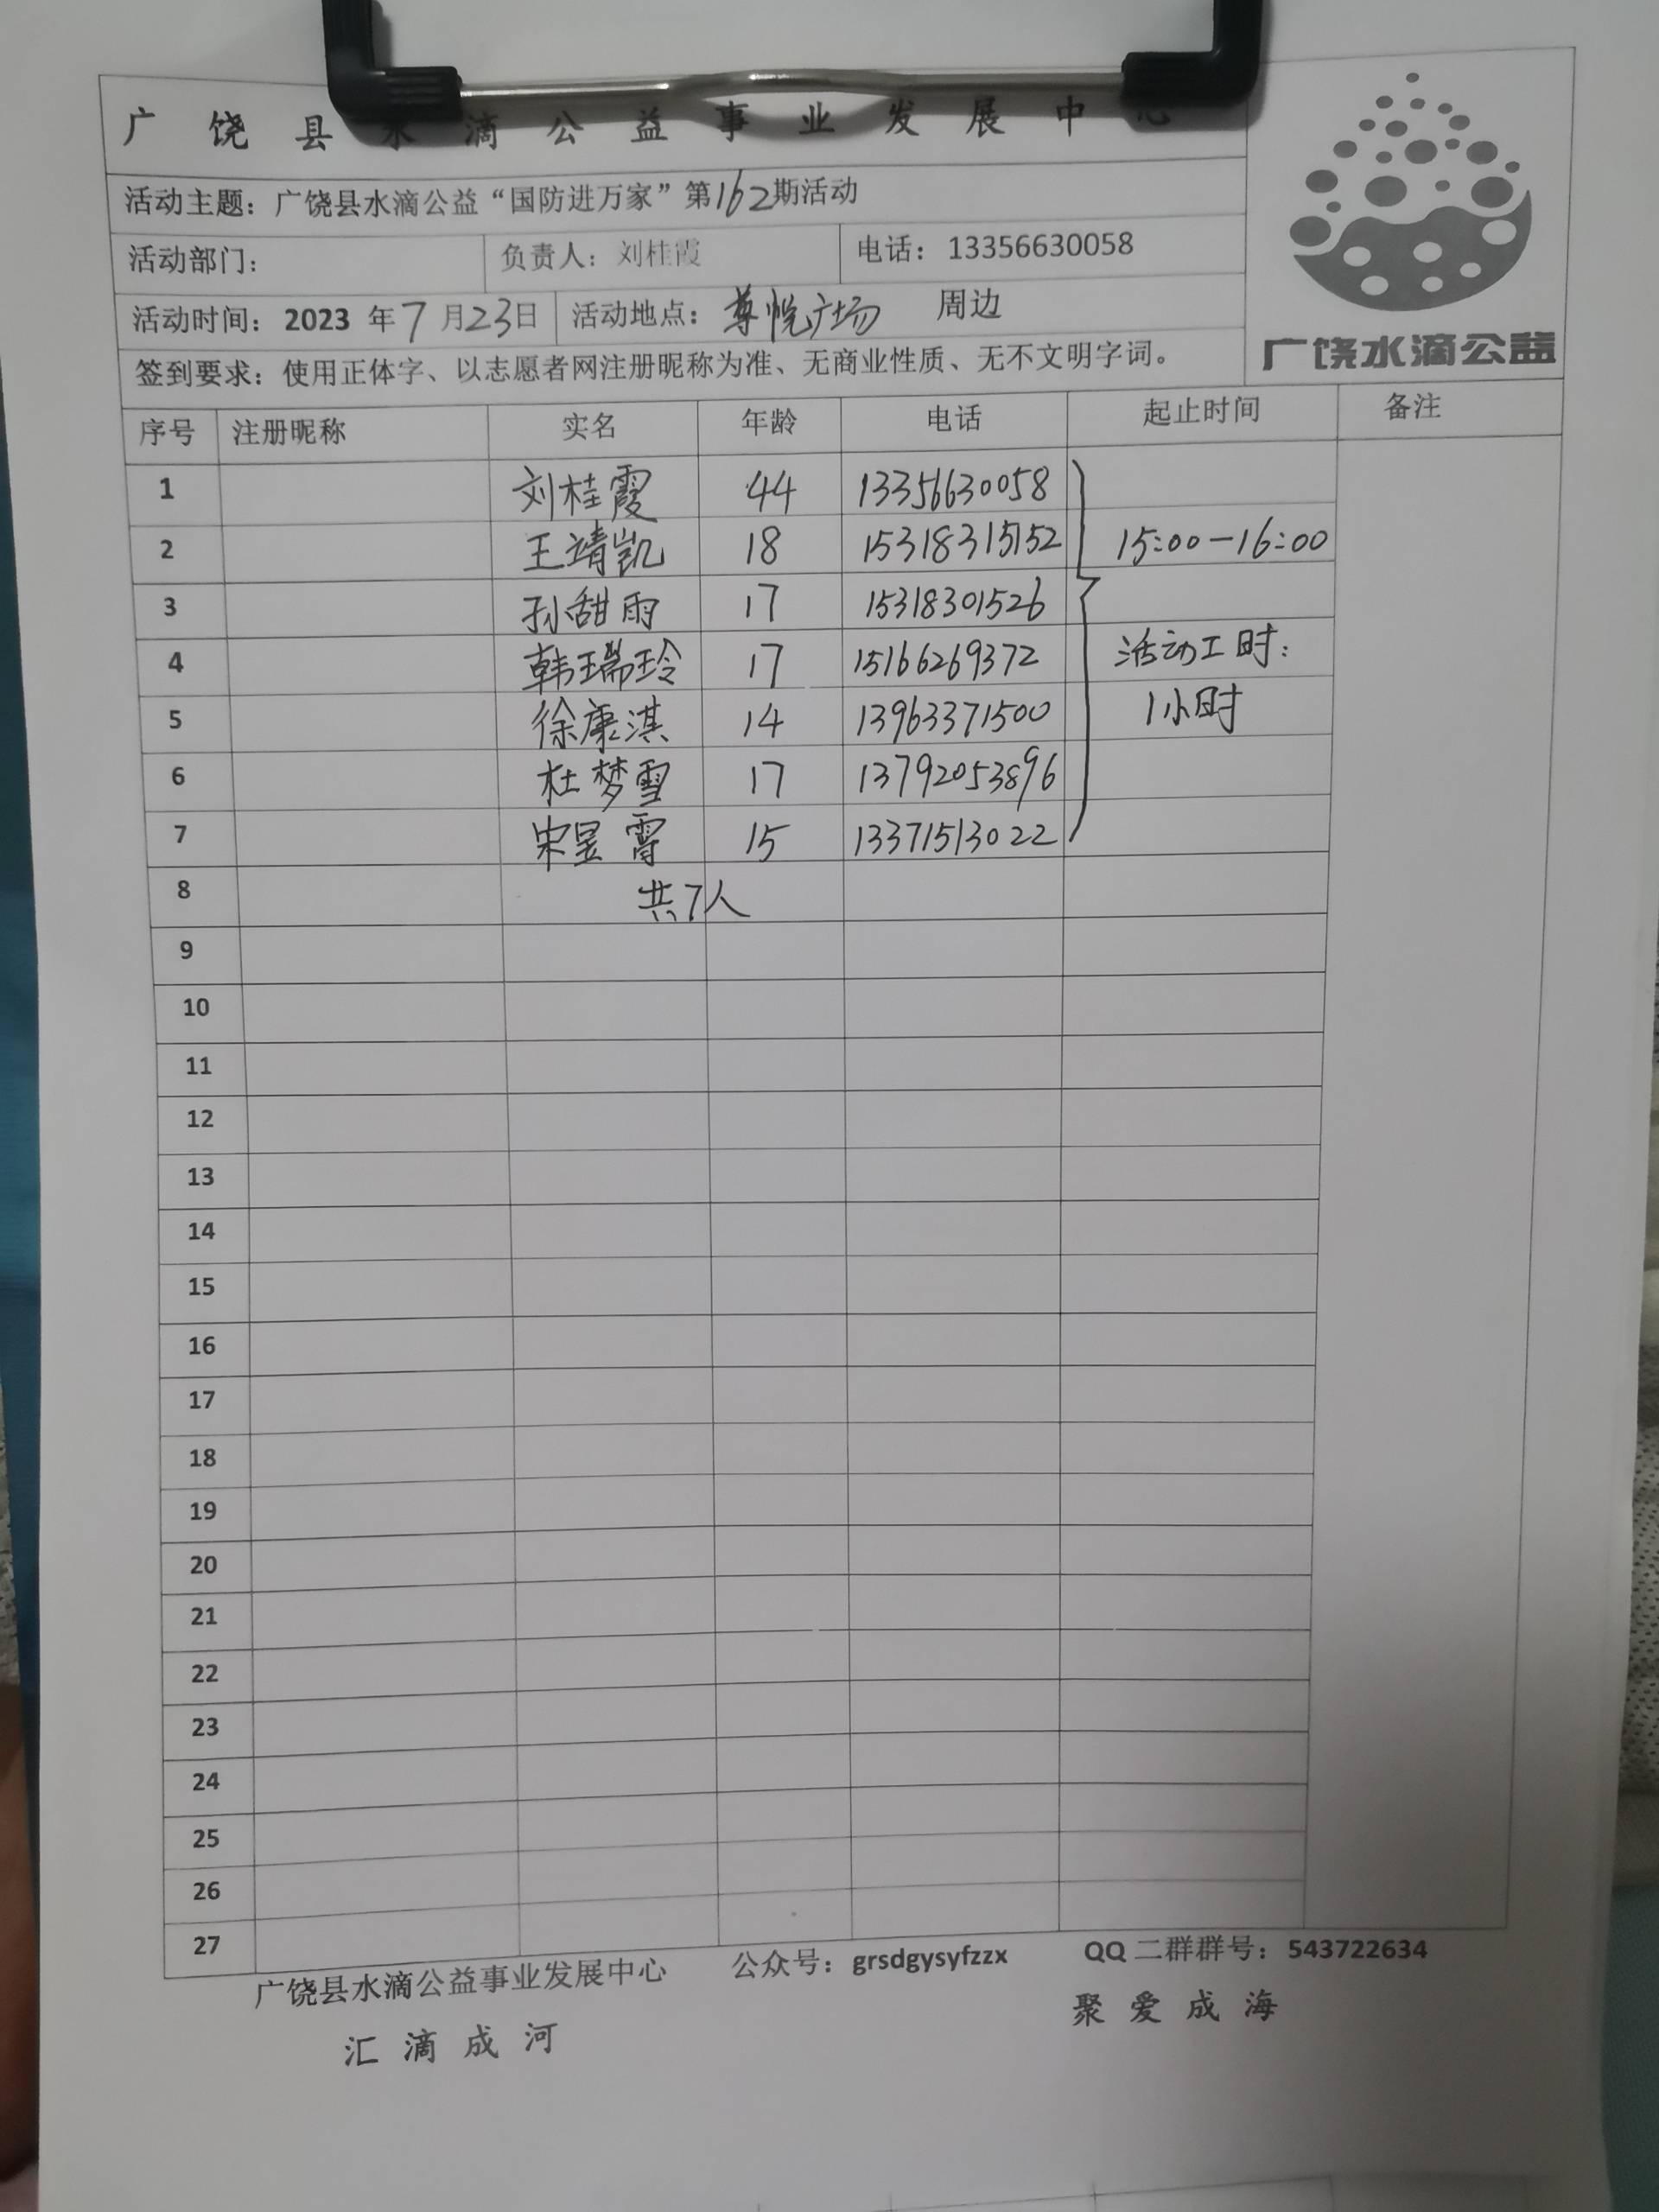 广饶县水滴公益事业发展中心
活动主题：广饶县水滴公益“国防进万家”第162期活动
活动部门： 负责人：刘桂霞 电话：13356630058
活动时间：2023 年7月23日 活动地点：尊悦广场 周边
签到要求：使用正体字、以志愿者网注册昵称为准、无商业性质、无不文明字词。
广饶水滴公益
序号 注册昵称 实名 年龄 电话 起止时间 备注
1 刘桂霞 44 13356630058
2 王靖凯 18 15318315152 15:00-16:00
3 孙甜雨 17 15318301526
4 韩瑞玲 17 15166269372 活动工时：
5 徐康淇 14 13963371500 1小时
6 杜梦雪 17 13792053896
7 宋昱霄 15 13371513022
8 共7人
9
10
11
12
13
14
15
16
17
18
19
20
21
22
23
24
25
26
27
广饶县水滴公益事业发展中心 公众号：grsdgysyfzzx QQ 二群群号：543722634
汇滴成河 聚爱成海